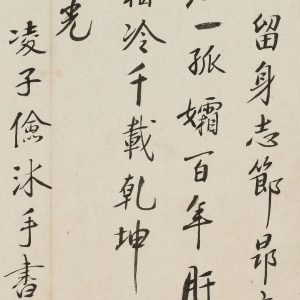 留身志節昂
一孤孀百年肝
冷千載乾坤
光
凌子儉沐手書